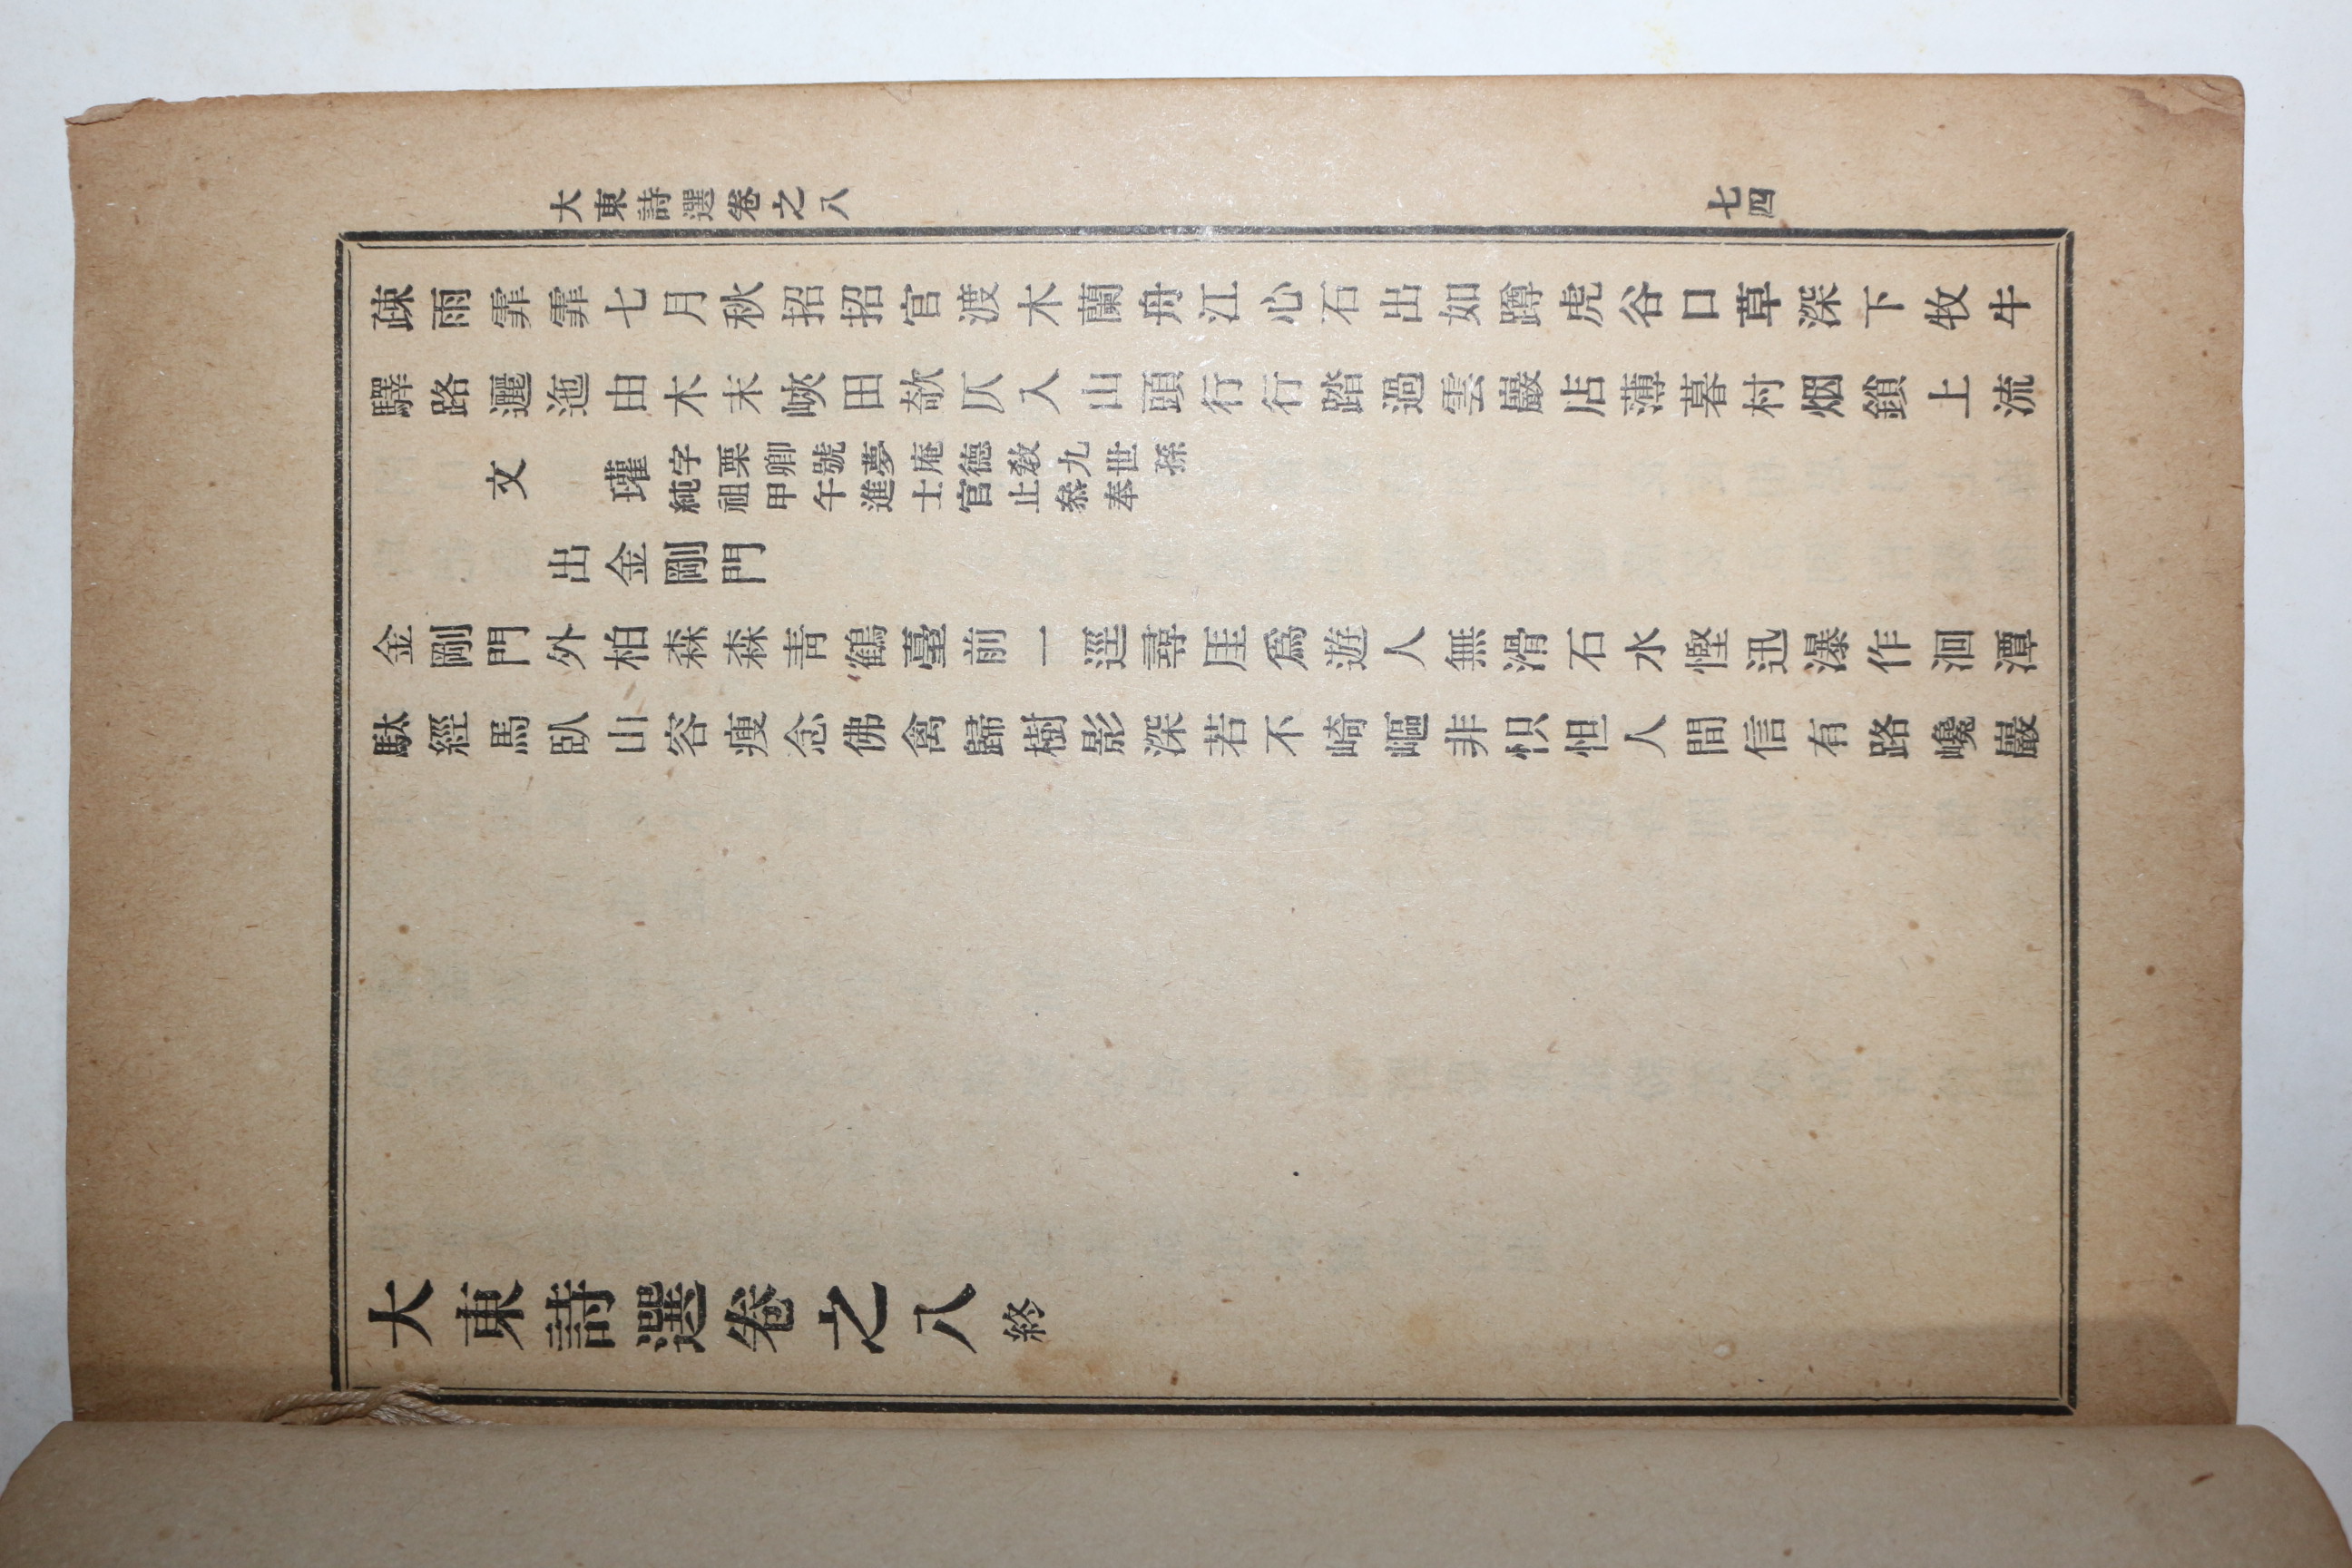 大東詩選卷之八 七四
疎雨霏霏七月秋招招官渡木蘭舟江心石出如蹲虎谷口草深下牧牛
驛路邐迤由木末峽田欹仄入山頭行行踏過雲巖店薄暮村烟鎖上流
文 瓘
字栗卿號夢庵德敎九世孫
純祖甲午進士官止叅奉
出金剛門
金剛門外柏森森靑鶴臺前一逕尋厓爲遊人無滑石水慳迅瀑作洄潭
馱經馬臥山容瘦念佛禽歸樹影深若不崎嶇非怾怛人間信有路巉巖
大東詩選卷之八 終